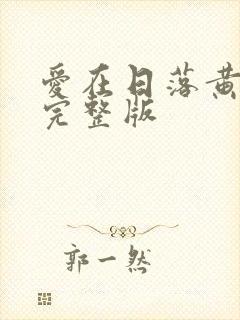 愛在日落黃
完整版
郭一然